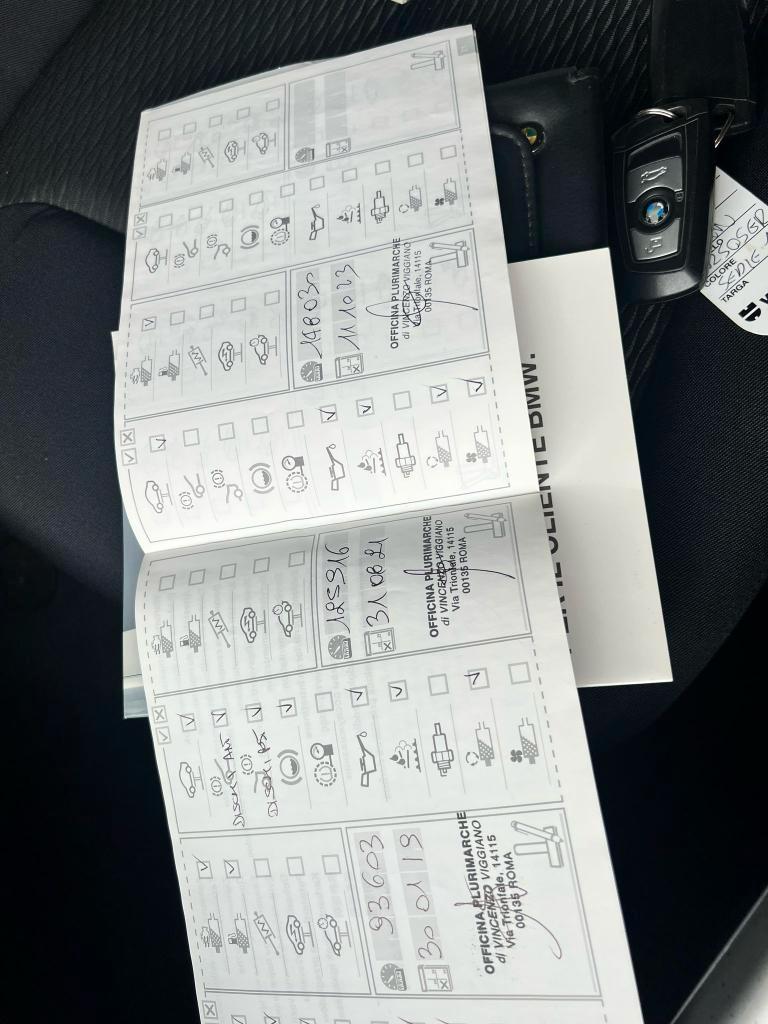 148030
11 10 23
OFFICINA PLURIMARCHE
di VINCENZO VIGGIANO
Via Trionfale, 14115
00135 ROMA
125916
31 08 21
OFFICINA PLURIMARCHE
di VINCENZO VIGGIANO
Via Trionfale, 14115
00135 ROMA
DISCHI ANT
DISCHI PS
93603
30 01 19
OFFICINA PLURIMARCHE
di VINCENZO VIGGIANO
Via Trionfale, 14115
00135 ROMA
IL CLIENTE BMW.
COLORE
TARGA